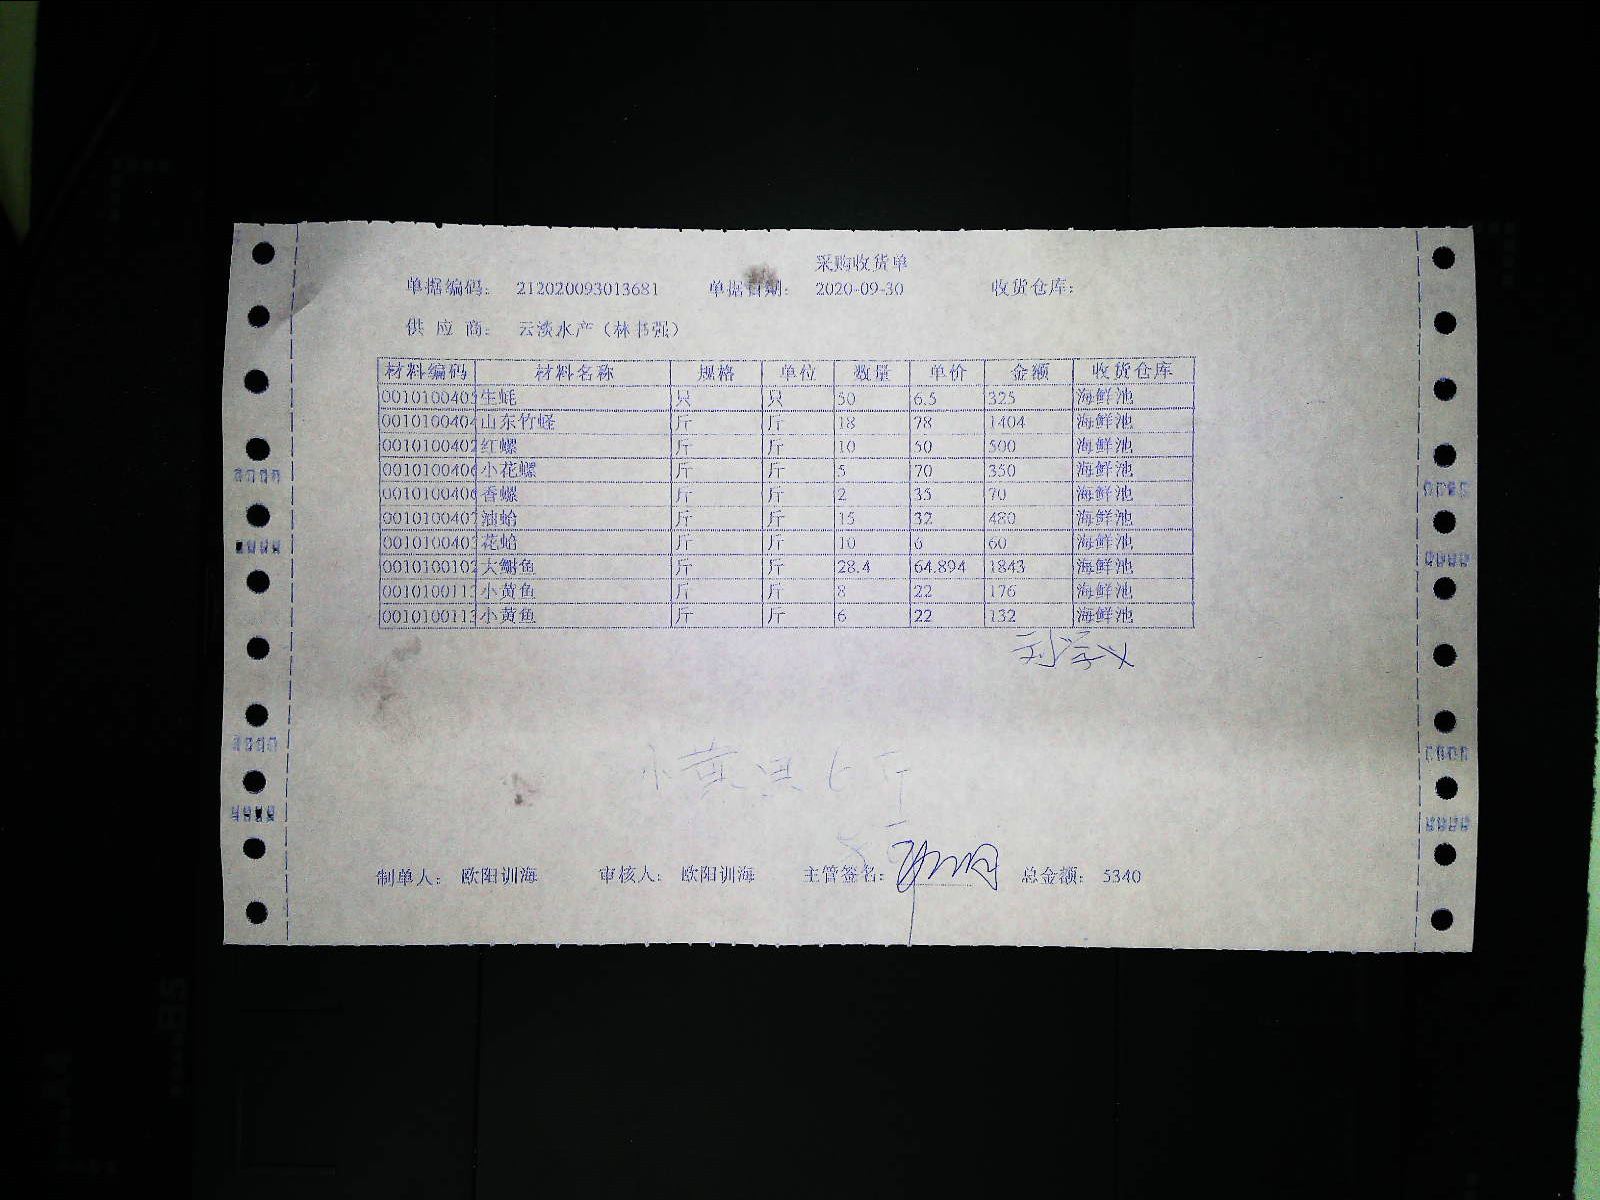 采购收货单
单据编码： 212020093013681 单据日期： 2020-09-30 收货仓库：
供 应 商： 云淡水产（林书强）
材料编码 材料名称 规格 单位 数量 单价 金额 收货仓库
0010100405 生蚝 只 只 50 6.5 325 海鲜池
0010100404 山东竹蛏 斤 斤 18 78 1404 海鲜池
0010100402 红螺 斤 斤 10 50 500 海鲜池
0010100406 小花螺 斤 斤 5 70 350 海鲜池
0010100406 香螺 斤 斤 2 35 70 海鲜池
0010100407 油蛤 斤 斤 15 32 480 海鲜池
0010100403 花蛤 斤 斤 10 6 60 海鲜池
0010100102 大鲷鱼 斤 斤 28.4 64.894 1843 海鲜池
0010100113 小黄鱼 斤 斤 8 22 176 海鲜池
0010100113 小黄鱼 斤 斤 6 22 132 海鲜池
小黄
制单人： 欧阳训海 审核人： 欧阳训海 主管签名： 总金额： 5340